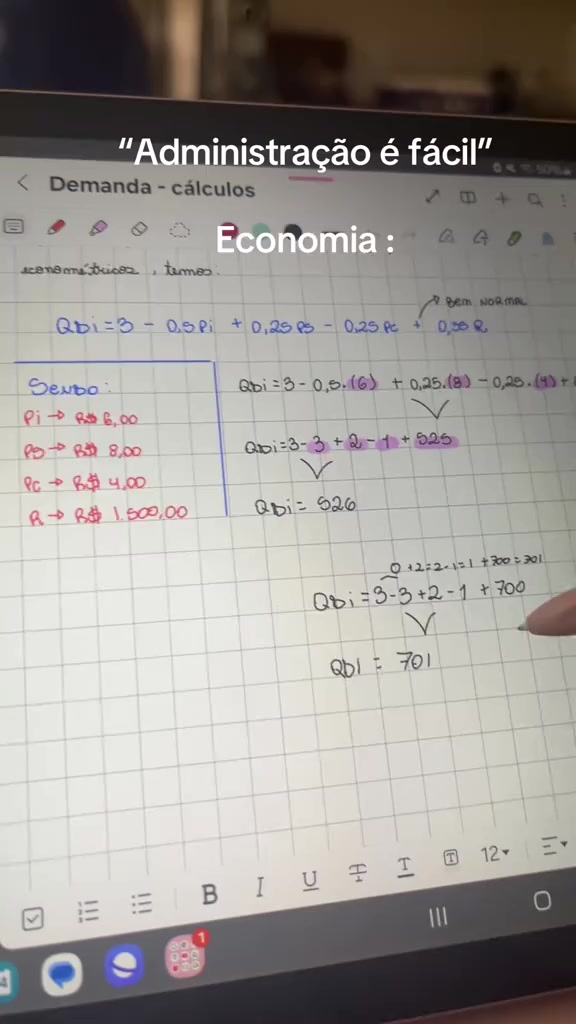 “Administração é fácil”
Demanda - cálculos
Economia :
econométricos, temos:
Bem NORMAL
QDi = 3 - 0,5Pi + 0,25Ps - 0,25Pc + 0,35 R
Sendo:
Pi → R$ 6,00
Ps → R$ 8,00
Pc → R$ 4,00
R → R$ 1.500,00
QDi = 3 - 0,5.(6) + 0,25.(8) - 0,25.(4) +
QDi = 3 - 3 + 2 - 1 + 525
QDi = 526
0 +2=2-1=1 +700=701
QDi = 3-3+2-1 +700
QDI = 701
B I U T T T 12
1